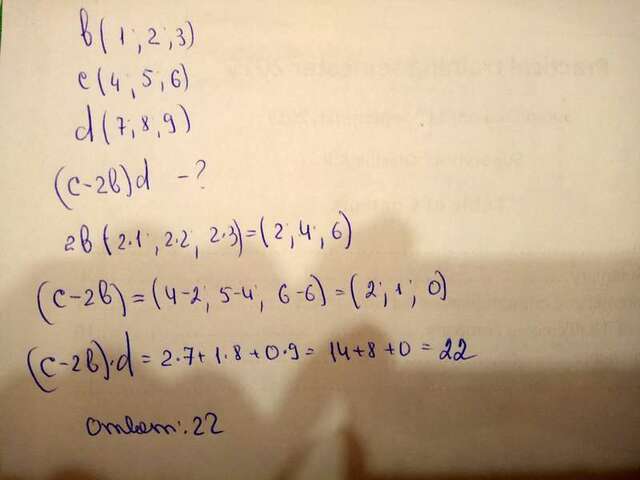 b(1; 2; 3)
c(4; 5; 6)
d(7; 8; 9)
(c-2b)d -?
2b(2·1; 2·2; 2·3)=(2; 4; 6)
(c-2b)=(4-2; 5-4; 6-6)=(2; 1; 0)
(c-2b)·d=2·7+1·8+0·9=14+8+0=22
Ответ: 22